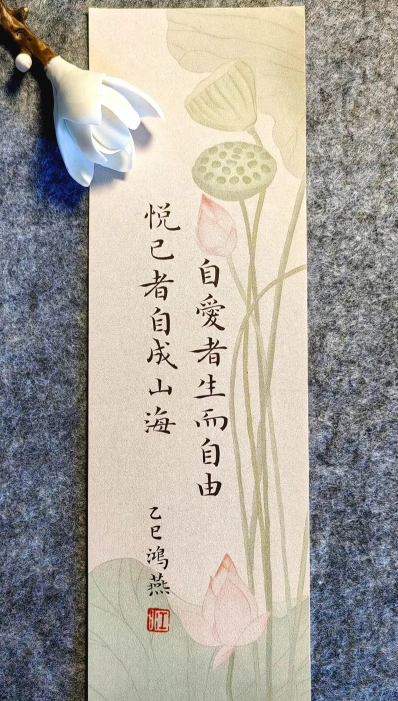 自愛者生而自由
悦己者自成山海
乙巳鴻燕
江